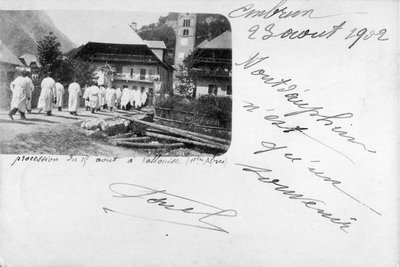 Embrun
23 août 1902
Montdauphin
n'est
qu'un
souvenir
procession du 15 août à Vallouise (Htes Alpes)